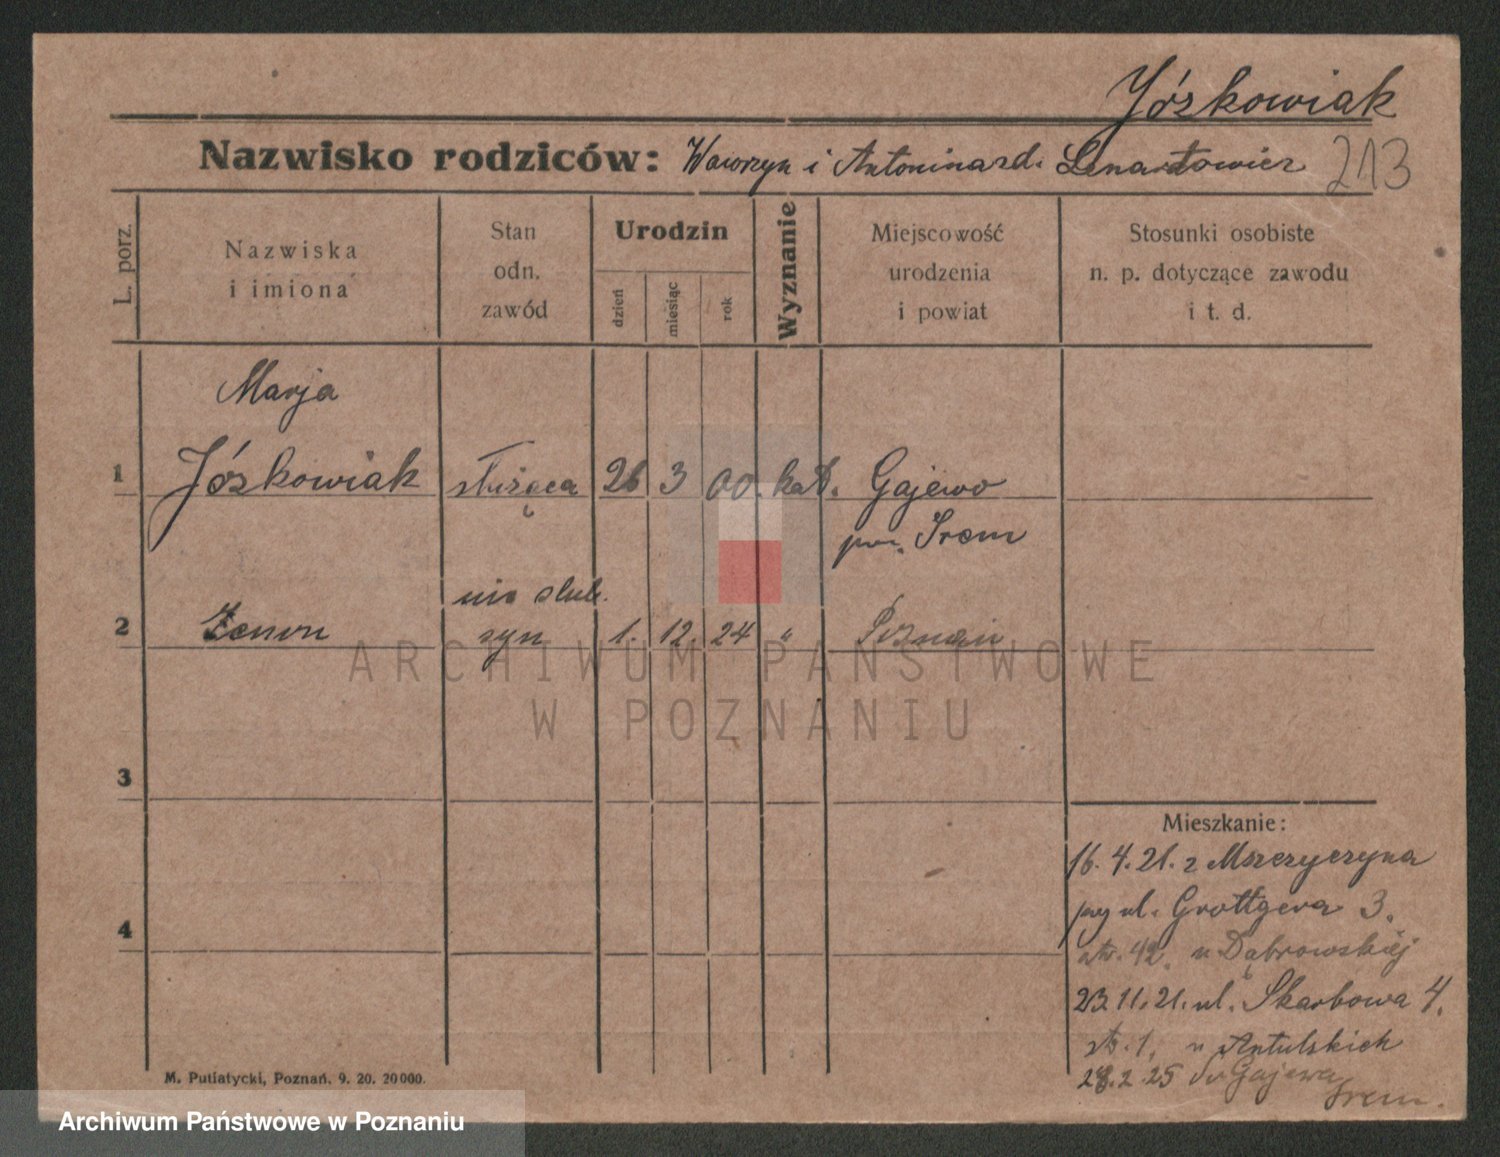 Józkowiak
Nazwisko rodziców: Wawrzyn i Antonina zd. Lenartowicz 213
L. porz.
Nazwiska
i imiona
Stan
odn.
zawód
Urodzin
dzień
miesiąc
rok
Wyznanie
Miejscowość
urodzenia
i powiat
Stosunki osobiste
n. p. dotyczące zawodu
i t. d.
Marja
1 Józkowiak służąca 26 3 00. kat. Gajewo
pow. Śrem
nie ślub.
2 Zenon syn 1. 12. 24 " Poznań
ARCHIWUM PAŃSTWOWE
W POZNANIU
3
4
Mieszkanie:
16. 4. 21. z Mszczyczyna
przy ul. Grottgera 3.
str. 42. u Dąbrowskiej
23.11.21. ul. Skarbowa 4.
str. 1. u Antulskich
28.2.25 do Gajewa
Śrem.
M. Putiatycki, Poznań. 9. 20. 20000.
Archiwum Państwowe w Poznaniu